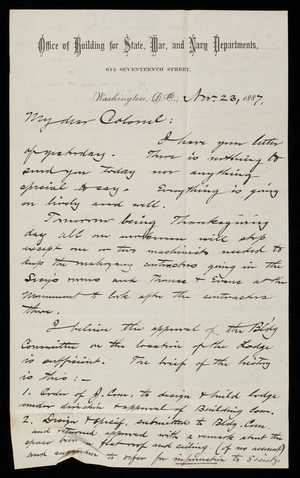 Office of Building for State, War, and Navy Departments,
612 SEVENTEENTH STREET,
Washington, D.C., Nov. 23, 1887,
My dear Colonel:
I have your letter
of yesterday. There is nothing to
send you today nor anything
special to say. Everything is going
on lively and well.
Tomorrow being Thanksgiving
day all our workmen will stop
except one or two machinists needed to
keep the mahogany contractors going in the
rooms and Thomas & Evans at the
Monument to look after the contractors
there.
I believe the approval of the Bldg
Committee on the location of the Lodge
is sufficient. The brief of the history
is this: —
1. Order of J. Com. to design & build lodge
under direction & approval of Building Com.
2. Design & specif. submitted to Bldg. Com.
and returned approved with a remark about the
space between flat roof and ceiling (of no account)
and suggestion to refer for information to Society.